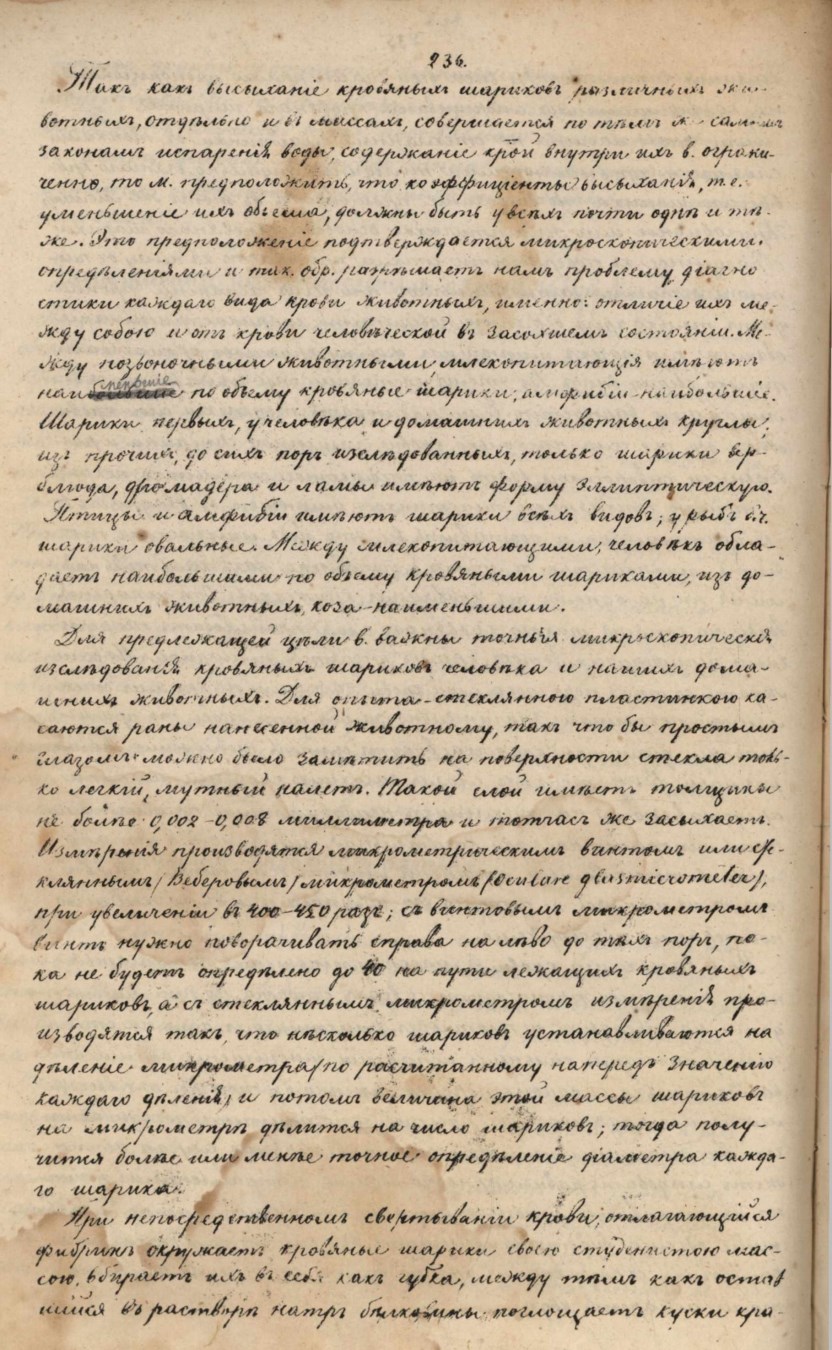 236.
Такъ какъ высыханіе кровяныхъ шариковъ различныхъ жи-
вотныхъ, отдѣльно и въ массахъ, совершается по тѣмъ же самымъ
законамъ испаренія воды, содержаніе крой внутри ихъ в. ограни-
ченно, то м. предположить, что коэффиціенты высыханія, т.е.
уменьшеніе ихъ объема, должны быть у всѣхъ почти одни и тѣ-
же. Это предположеніе подтверждается микроскопическими
опредѣленіями и так. обр. разъ нам проблему діагно
стики каждаго вида крови животныхъ, именно: отличіе ихъ ме-
жду собою и отъ крови человѣческой въ засохшемъ состояніи. Ме-
жду позвоночными животными, млекопитающія имѣютъ
наименьшіе по объему кровяные шарики, амфибіи - наибольшіе.
Шарики первыхъ, у человѣка и домашнихъ животныхъ круглы;
изъ прочихъ, до сихъ поръ изслѣдованныхъ, только шарики вер-
блюда, дромадера и ламы имѣютъ форму эллиптическую.
Птицы и амфибіи имѣютъ шарики всѣхъ видовъ; у рыбъ б.ч.
шарики овальные. Между млекопитающими, человѣкъ обла-
даетъ наибольшими по объему кровяными шариками, изъ до-
машнихъ животныхъ, коза - наименьшими.
Для предлежащей цѣли в. важны точныя микроскопическія
изслѣдованія кровяныхъ шариковъ человѣка и нашихъ дома-
шнихъ животныхъ. Для опыта - стеклянною пластинкою ка-
саются раны нанесенной животному, такъ что бы простымъ
глазомъ можно было замѣтить на поверхности стекла толь-
ко легкій, мутный налетъ. Такой слой имѣетъ толщины
не болѣе 0,002-0,008 миллиметра и тотчасъ же засыхаетъ.
Измѣренія производятся микрометрическимъ винтомъ или сте-
кляннымъ (Веберовымъ) микрометромъ (Oculare glasmicrometer),
при увеличеніи въ 400-450 разъ; съ винтовымъ микрометромъ
винтъ нужно поворачивать справа на лѣво до тѣхъ поръ, по-
ка не будетъ опредѣлено до 40 на пути лежащихъ кровяныхъ
шариковъ, а съ стекляннымъ микрометромъ измѣренія про-
изводятся такъ, что нѣсколько шариковъ устанавливаются на
дѣленіе микрометра (по расчитанному напередъ значенію
каждаго дѣленія) и потомъ величина этой массы шариковъ
на микрометрѣ дѣлится на число шариковъ; тогда полу-
чится болѣе или менѣе точное опредѣленіе діаметра каждо-
го шарика.
При непосредственномъ свертываніи крови, отлагающійся
фибринъ окружаетъ кровяные шарики своею студенистою мас-
сою, вбираетъ ихъ въ себя какъ губка, между тѣмъ какъ остав
шійся въ растворѣ натръ поглощаетъ куски кро-